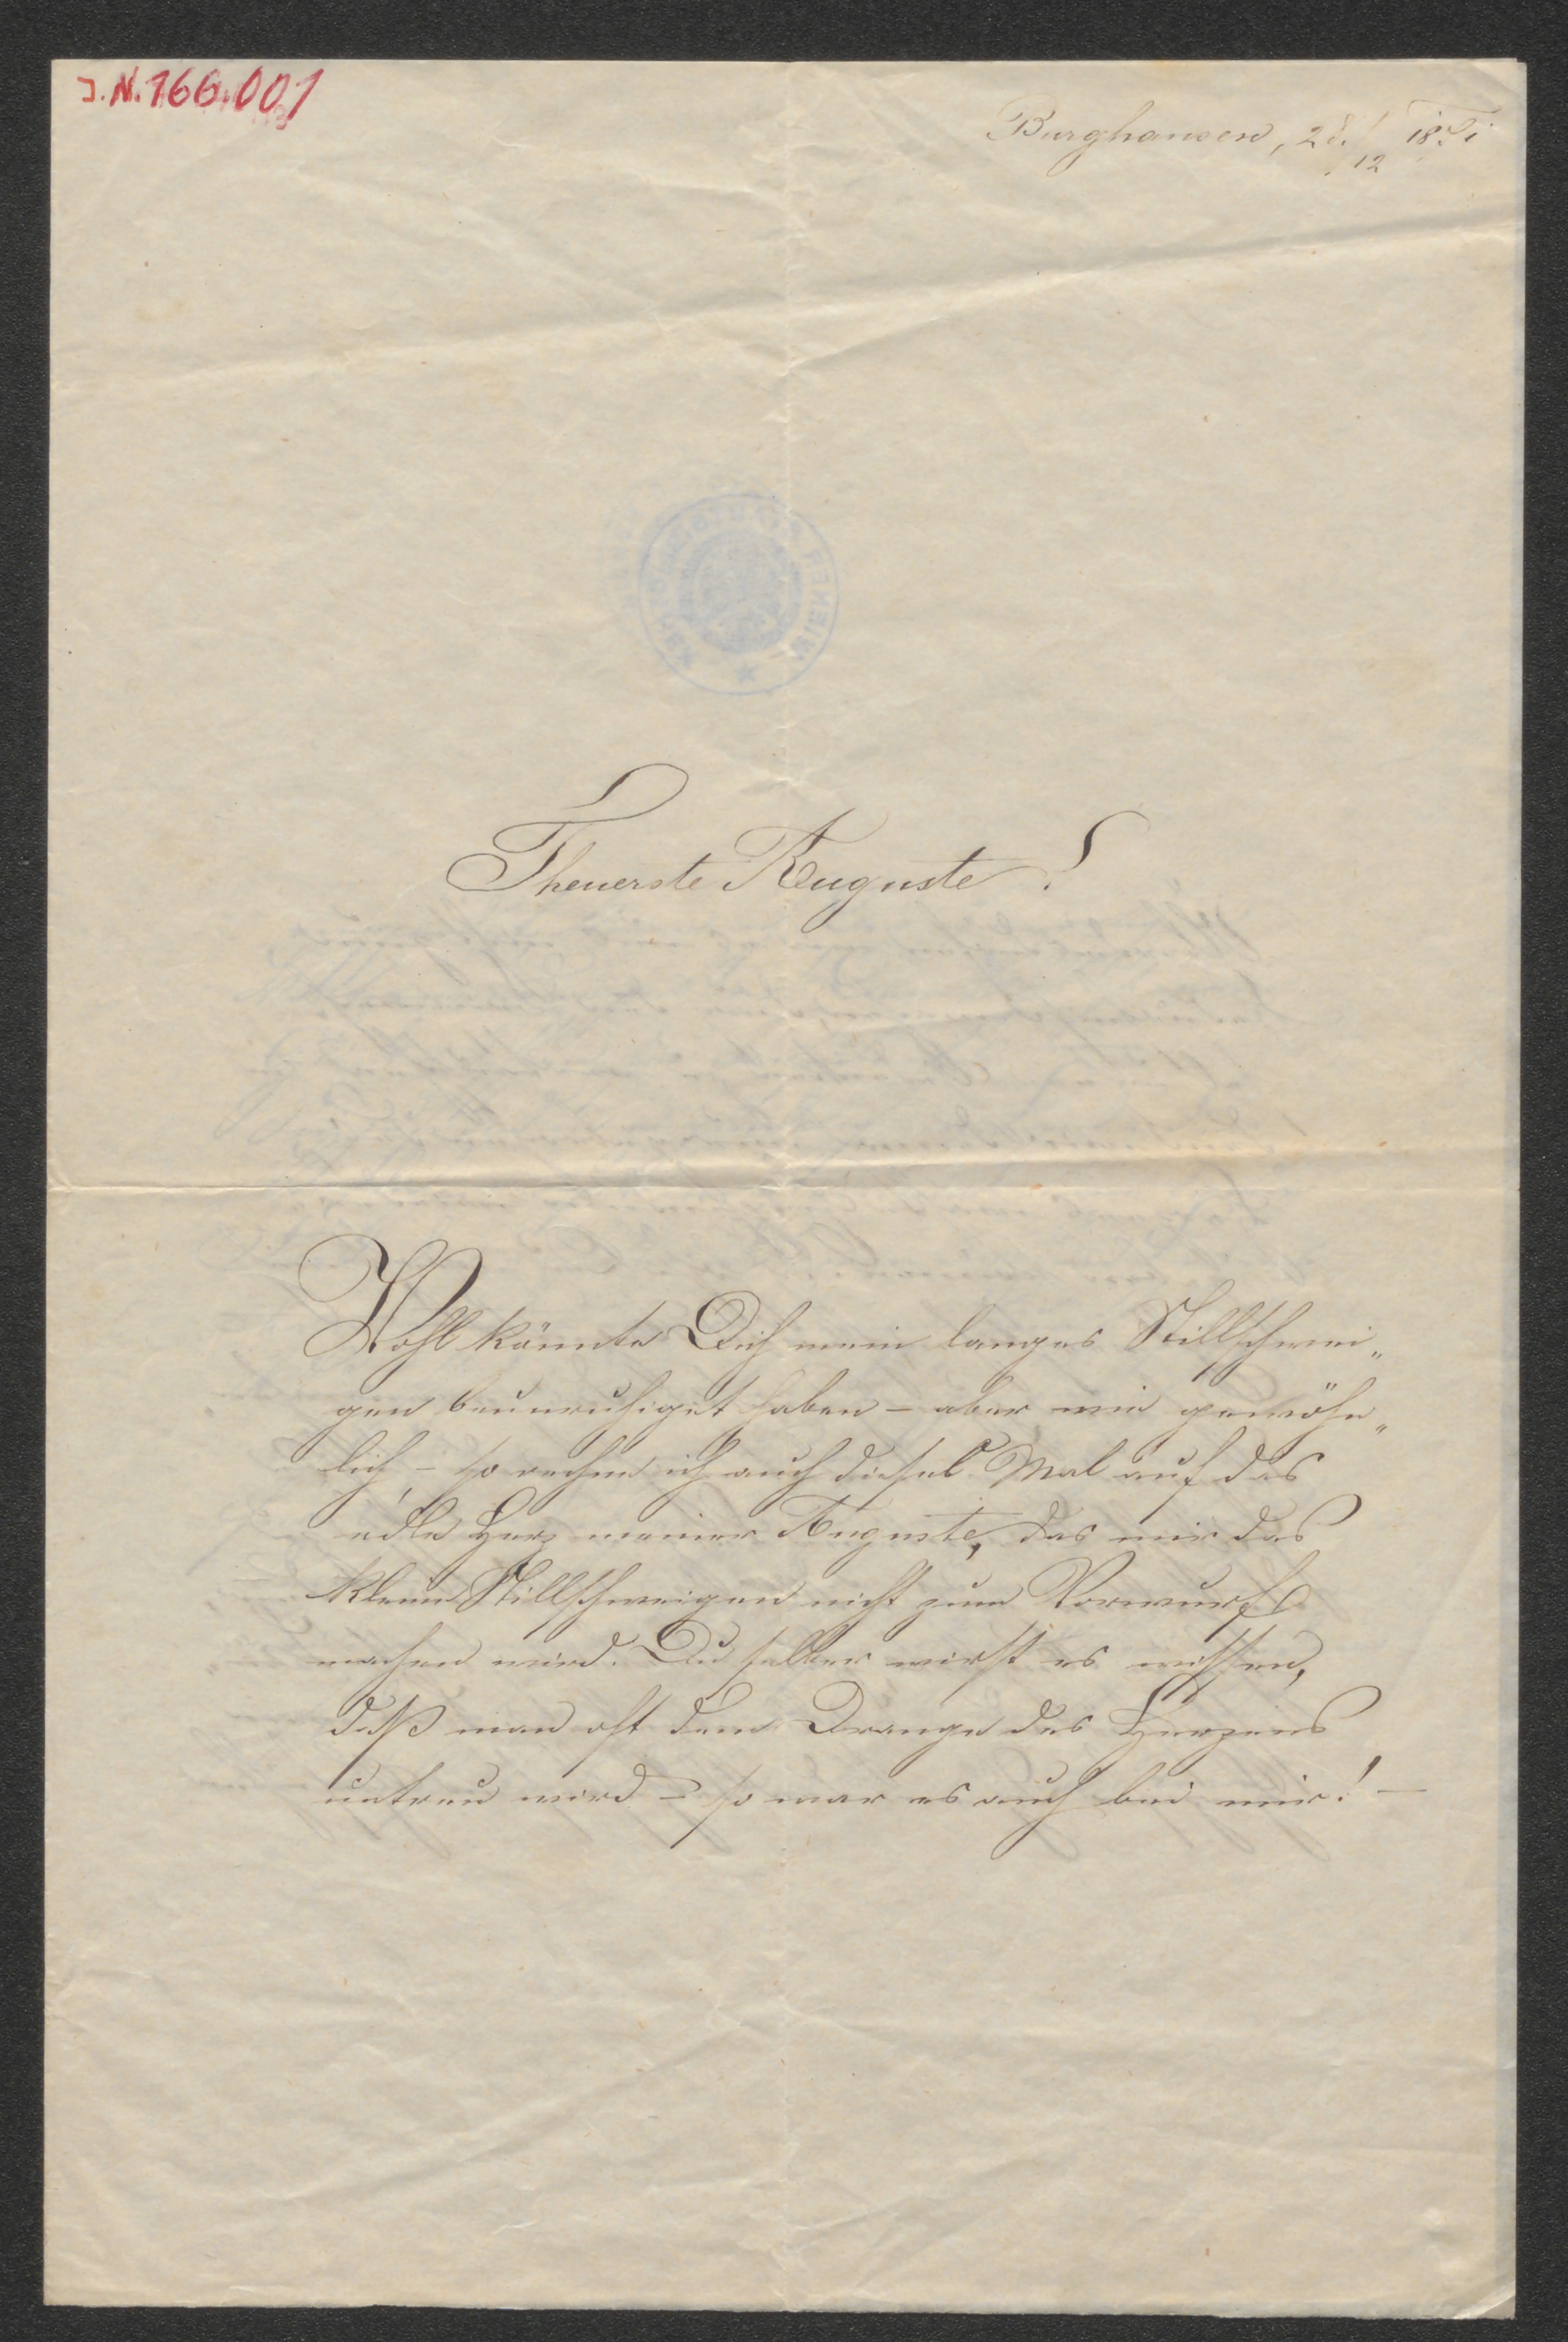 J.N.166.001
Burghausen, 28./12
Theuerste Auguste!
Wohl könnte Dich mein langes Stillschwei„
gen beunruhiget haben – aber wie gewöhn„
lich, – so rechne ich auch diesel Mal auf das
edle Herz meiner Auguste, das mir das
kleine Stillschweigen nicht zum Vorwurfe
machen wird. Du selber wirst es wissen,
daß man oft dem Drange des Herzens
untreu wird – so war es auch bei mir! –